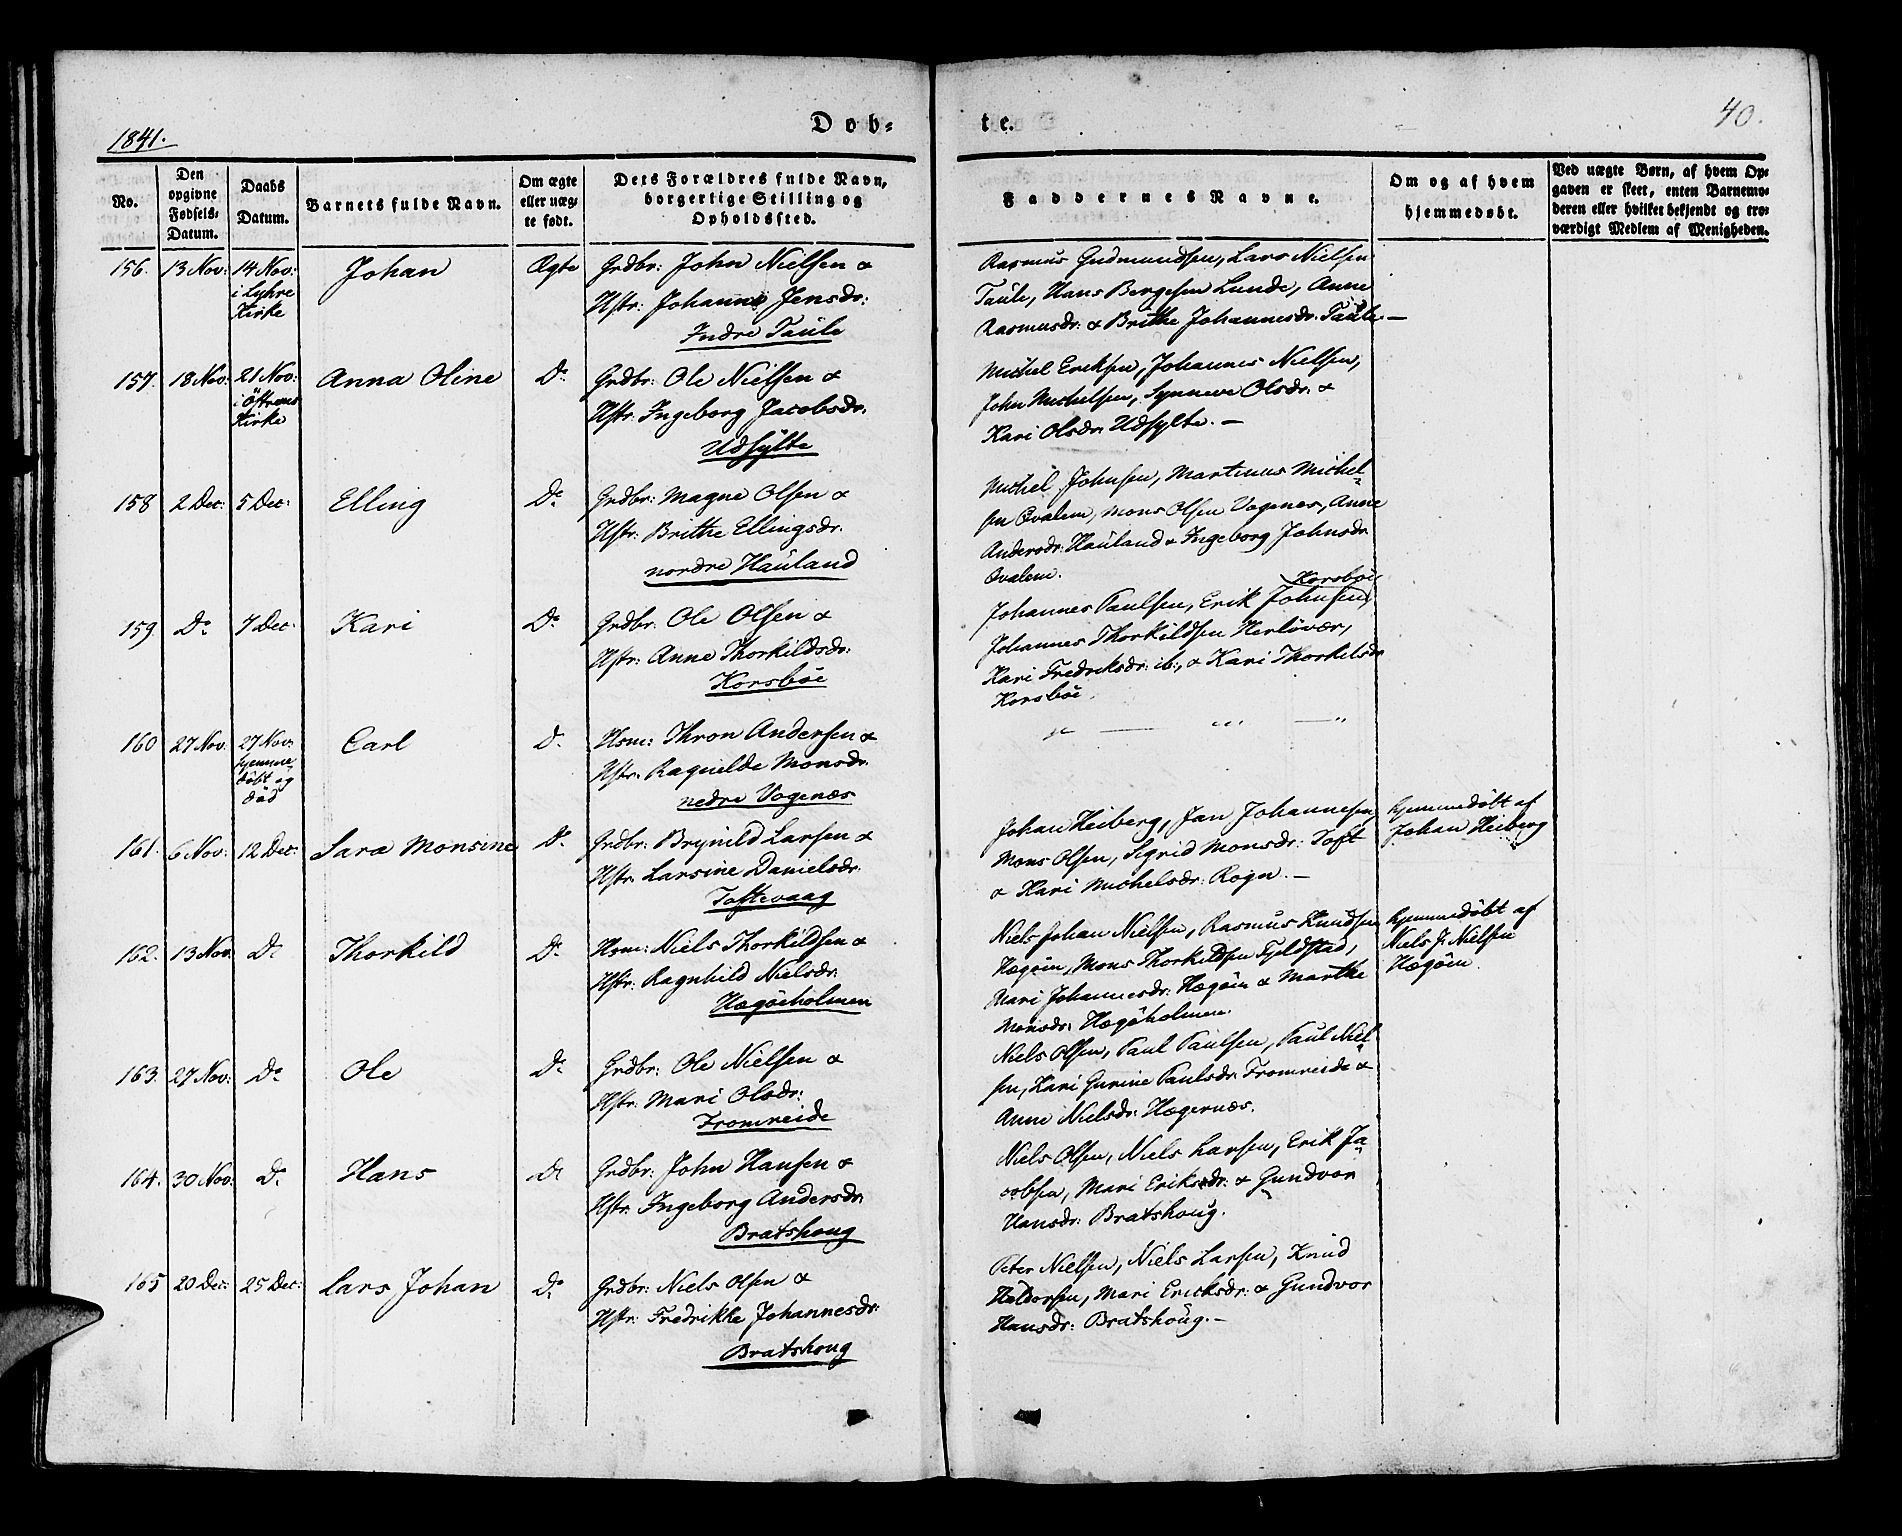 1841.
Døb-
te.
40.
No.
Den
opgivne
Fødsels-
Datum.
Daabs
Datum.
Barnets fulde Navn.
Om ægte
eller uæg-
te født.
Dets Forældres fulde Navn,
borgerlige Stilling og
Opholdssted.
Faddernes Navne.
Om og af hvem
hjemmedøbt.
Ved uægte Børn, af hvem Op-
gaven er skeet, enten Barnemo-
deren eller hvilket bekjendt og tro-
værdigt Medlem af Menigheden.
156. 13 Nov: 14 Nov:
i Lyhre
Kirke
Johan
Ægte
Grdbr: John Nielsen &
Hstr: Johanne Jensdr:
Indre Taule
Rasmus Gudmundsen, Lars Nielsen
Taule, Hans Bergesen Lunde, Anne
Rasmusdr: & Brithe Johannesdr: Taule. —
157. 18 Nov: 21 Nov:
i Östrems
Kirke
Anna Oline
Do
Grdbr: Ole Nielsen &
Hstr: Ingeborg Jacobsdr:
Udsylte
Michel Eriksen, Johannes Nielsen,
John Michelsen, Synneve Olsdr: &
Kari Olsdr: Udsylte. —
158 2 Dec: 5 Dec:
Elling
Do
Grdbr: Magne Olsen &
Hstr: Brithe Ellingsdr.
nordre Hauland
Michel Johnsen, Martinus Michel-
sen Qvalem, Mons Olsen Vogenes, Anne
Andersdr: Hauland & Ingeborg Johnsdr
Qvalem.
159. Do 7 Dec:
Kari
Do
Grdbr: Ole Olsen &
Hstr: Anne Thorkildsdr:
Korsböe
Korsböe
Johannes Paulsen, Erik Johnsen,
Johannes Thorkildsen Herlövær,
Kari Fredriksdr: ib:, & Kari Thorkelsdr
Korsböe.
160 27 Nov: 27 Nov:
hjemme
döbt og
död
Carl
Do
Hsm: Thron Andersen &
Hstr: Ragnilde Monsdr.
nedre Vogenæs
161. 6 Nov: 12 Dec:
Sara Monsine
Do
Grdbr: Brynild Larsen &
Hstr. Larsine Danielsdr.
Toftevaag
Johan Heiberg, Jan Johannesen,
Mons Olsen, Sigrid Monsdr: Toft
& Kari Michelsdr: Rogn. —
hjemmedöbt af
Johan Heiberg
162. 13 Nov. Do
Thorkild
Do
Hsm: Niels Thorkildsen &
Hstr: Ragnhild Nielsdr:
Hægöeholmen
Niels Johan Nielsen, Rasmus Knudsen
Hægöen, Mons Thorkildsen Fyldstad,
Mari Johannesdr: Hægöen & Marthe
Monsdr: Hægöholmen.
hjemmedöbt af
Niels J. Nielsen
Hægöen.
163. 27 Nov: Do
Ole
Do
Grdbr: Ole Nielsen &
Hstr: Mari Olsdr:
Fromreide
Niels Olsen, Paul Paulsen, Paul Niel-
sen, Kari Gurine Paulsdr: Fromreide &
Anne Nielsdr: Hægernæs.
164. 30 Nov: Do
Hans
Do
Grdbr: John Hansen &
Hstr: Ingeborg Andersdr.
Bratshoug
Niels Olsen, Niels Larsen, Erik Ja-
cobsen, Mari Eriksdr: & Gundvor
Hansdr: Bratshoug.
165 20 Dec: 25 Dec:
Lars Johan
Do
Grdbr: Niels Olsen &
Hstr: Fredrikke Johannesdr:
Bratshoug
Peter Nielsen, Niels Larsen, Knud
Haldorsen, Mari Ericksdr: & Gundvor
Hansdr: Bratshoug. —